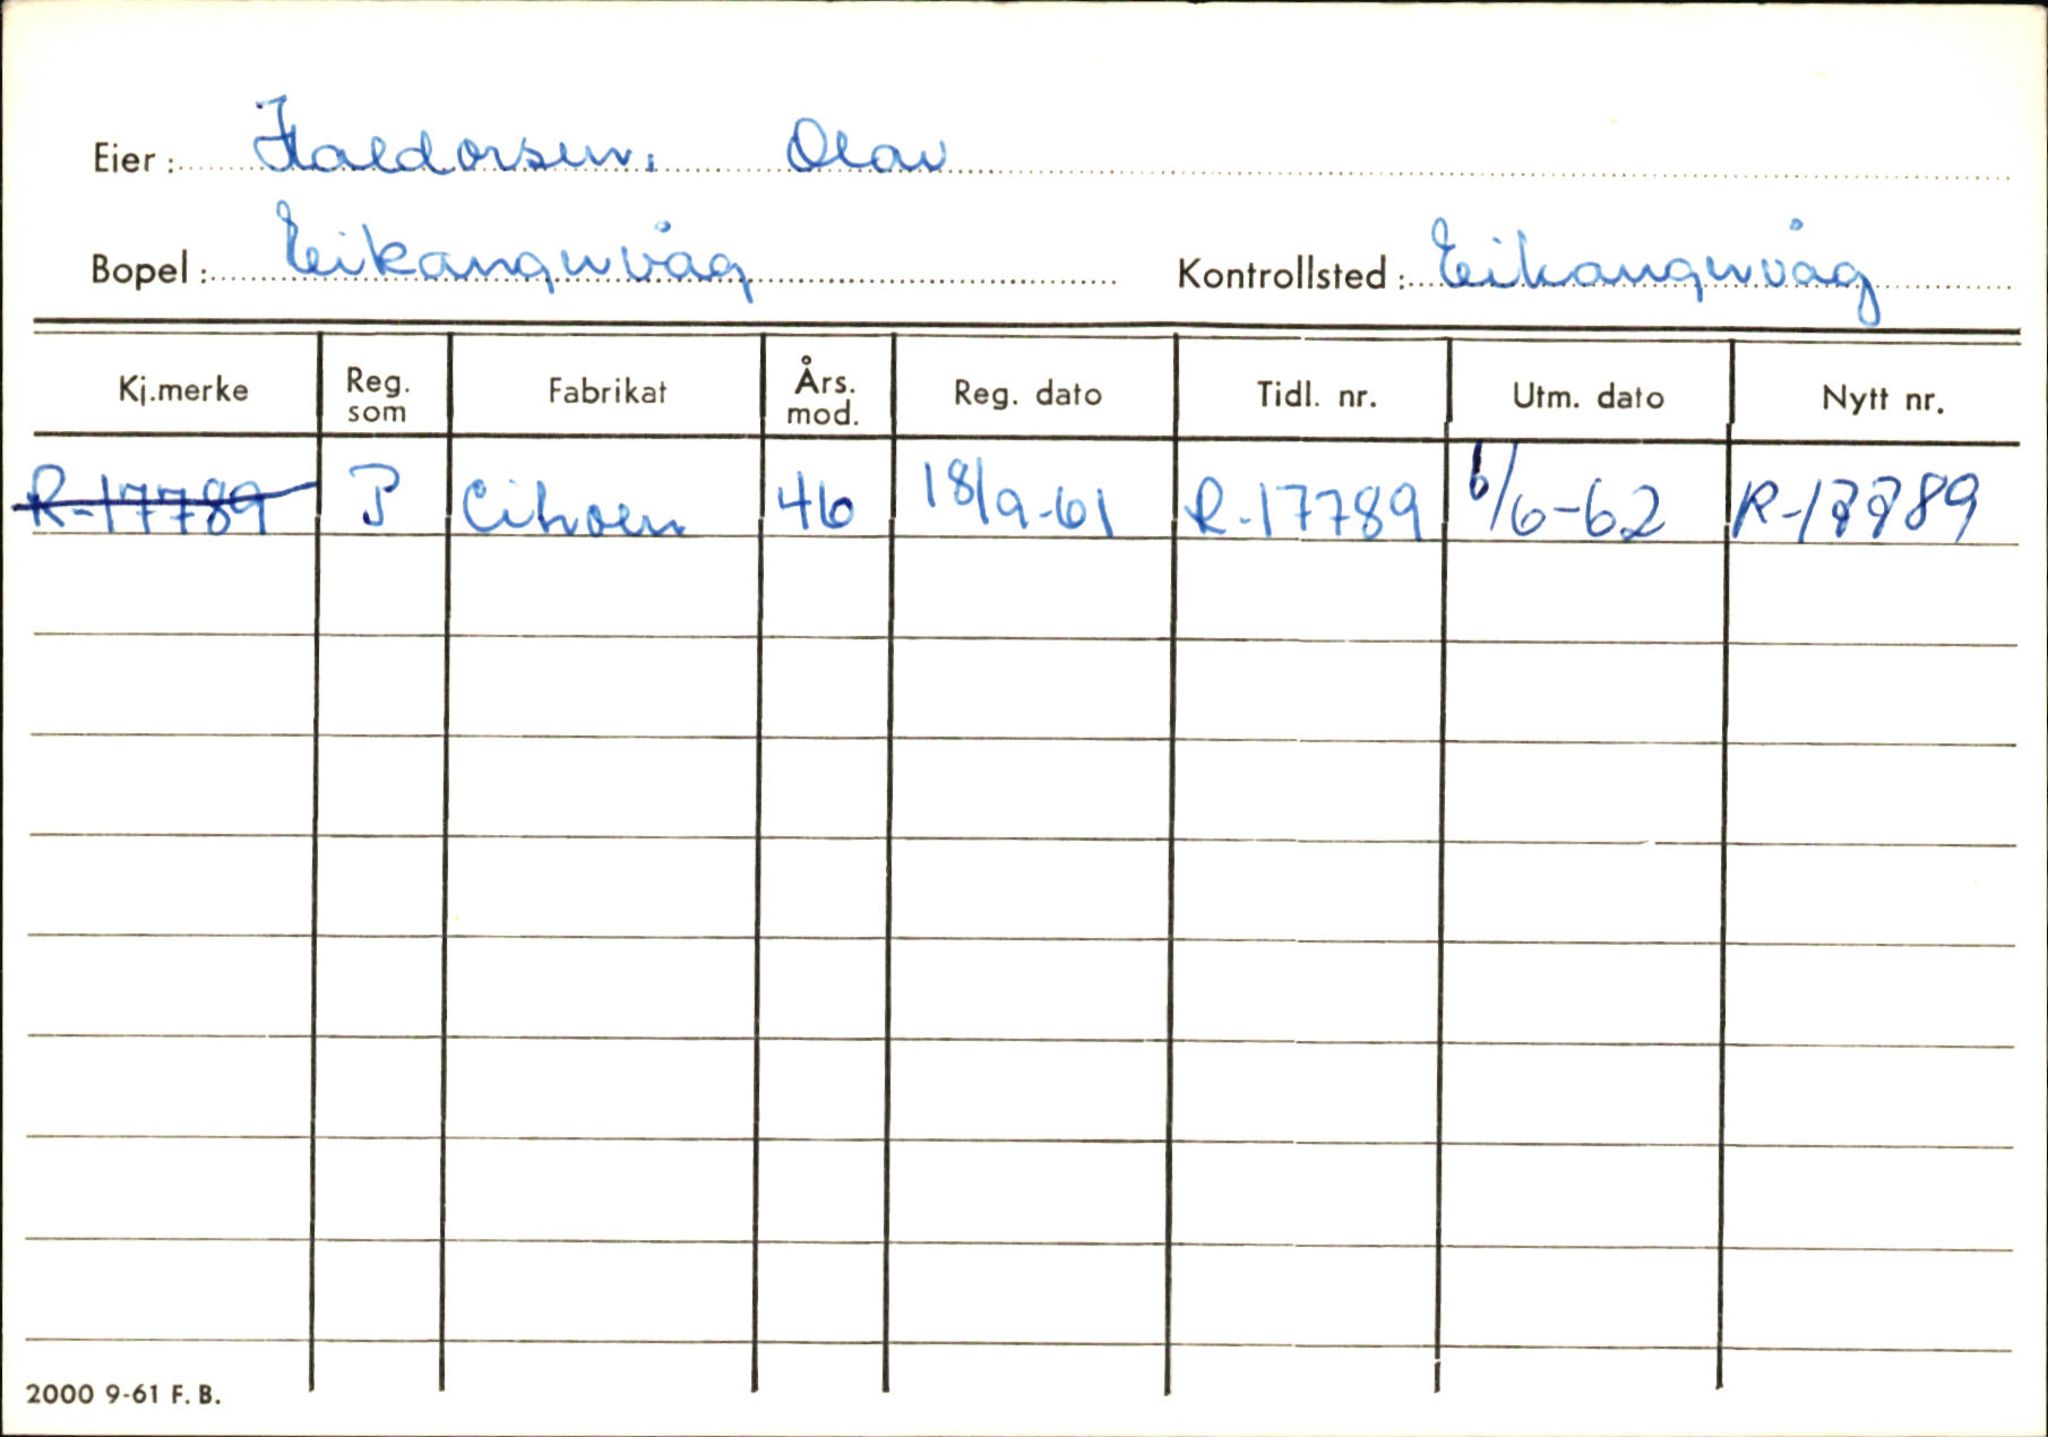 Eier: Haldorsen, Olav
Bopel: Eikangervåg Kontrollsted: Eikangervåg
Kj.merke Reg. som Fabrikat Års. mod. Reg. dato Tidl. nr. Utm. dato Nytt nr.
R-17789 P Citroen 46 18/9-61 R-17789 6/6-62 R-17789
2000 9-61 F. B.